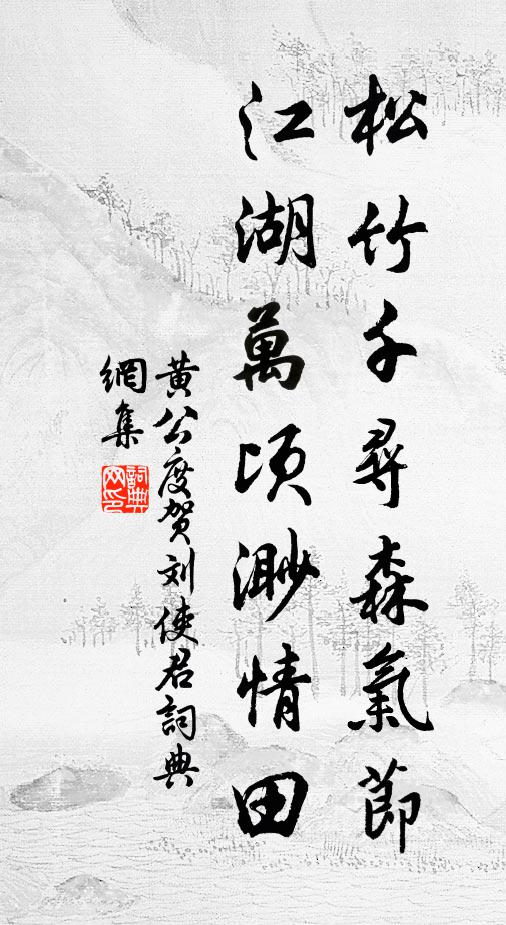 松竹千尋森氣節
江湖萬頃渺情田
黃公度賀刘使君詞典
網集
詞典
网印